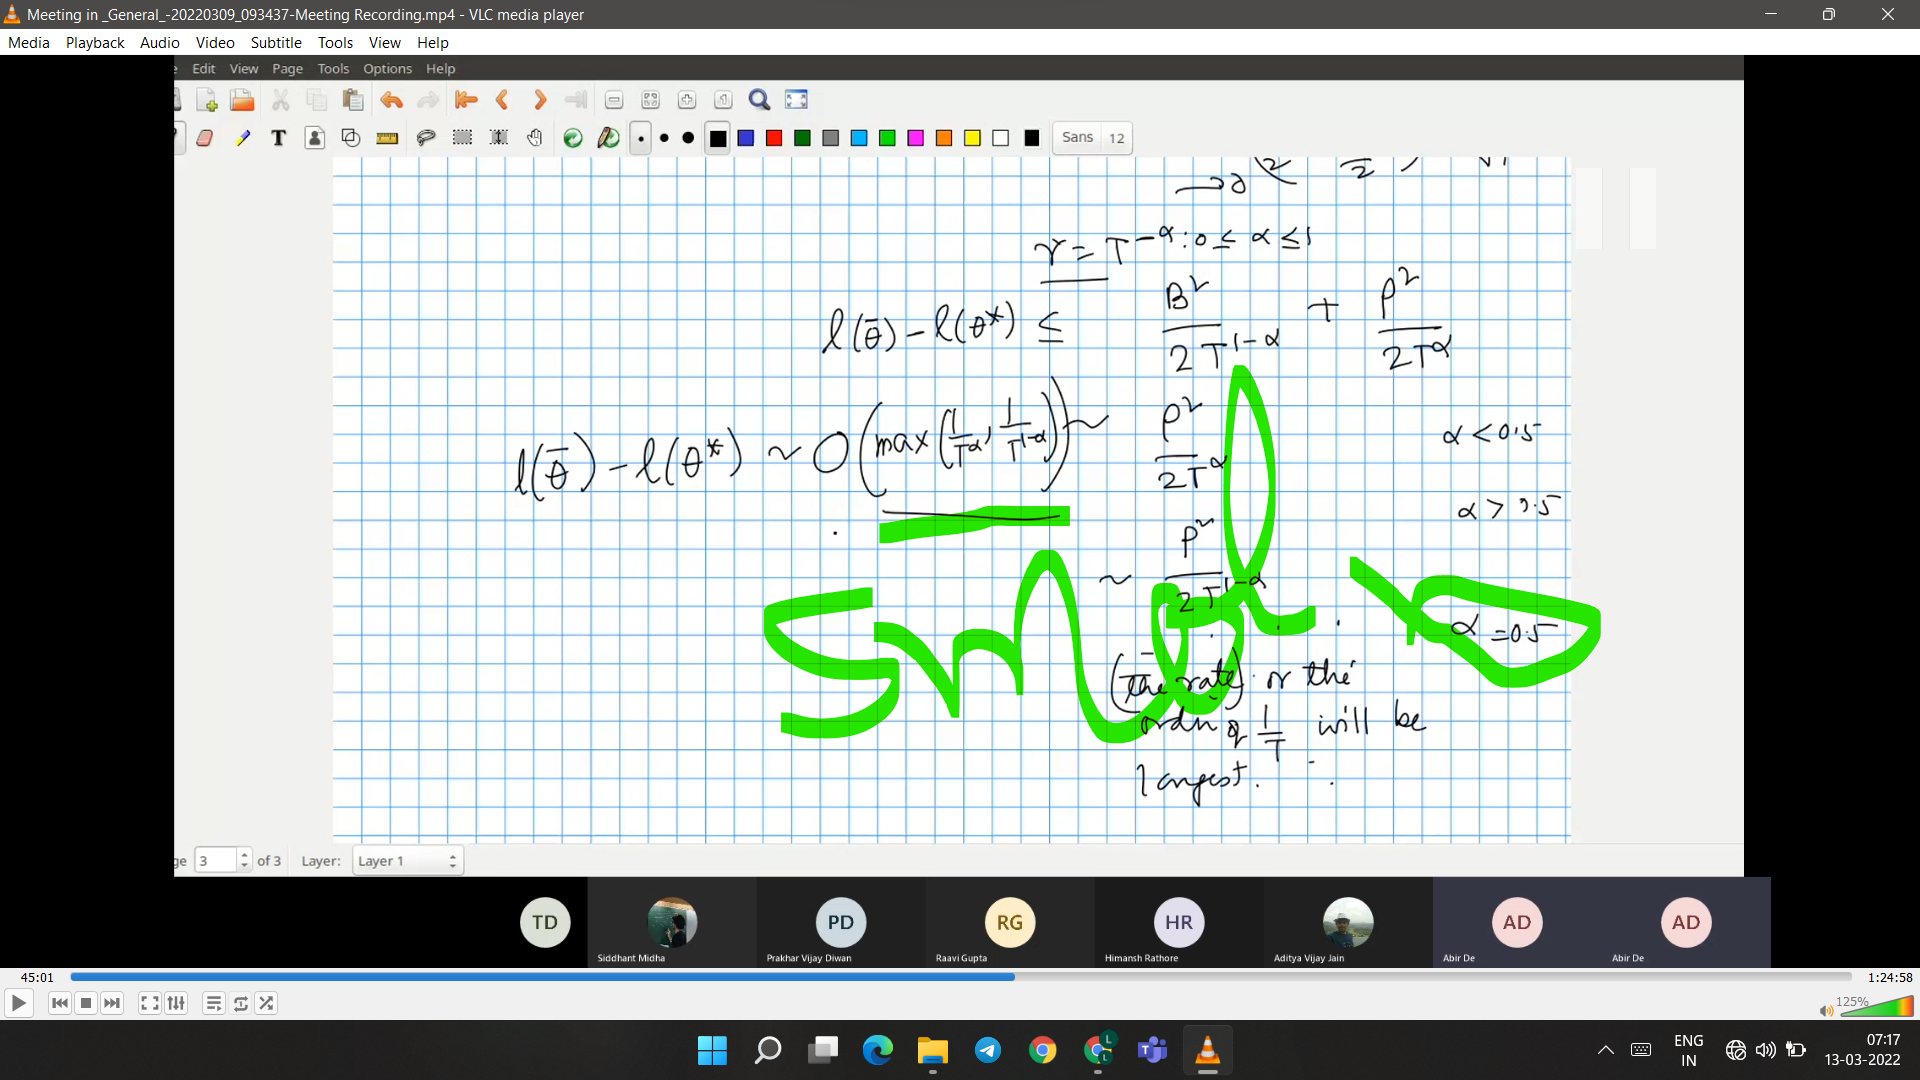 Meeting in _General_-20220309_093437-Meeting Recording.mp4 - VLC media player
Media Playback Audio Video Subtitle Tools View Help
e Edit View Page Tools Options Help
T Sans 12
γ = T^{-α} : 0 ≤ α ≤ 1
l(θ̄) - l(θ*) ≤ B²/2T^{1-α} + ρ²/2T^α
l(θ̄) - l(θ*) ~ O(max(1/T^α, 1/T^{1-α})) ~ ρ²/2T^α α < 0.5
α > 0.5
~ ρ²/2T^{1-α}
α = 0.5
small
(The rate) or the
order of 1/T will be
largest.
ge 3 of 3 Layer: Layer 1
TD PD RG HR AD AD
Siddhant Midha Prakhar Vijay Diwan Raavi Gupta Himansh Rathore Aditya Vijay Jain Abir De Abir De
45:01 1:24:58
125%
L
ENG 07:17
IN 13-03-2022